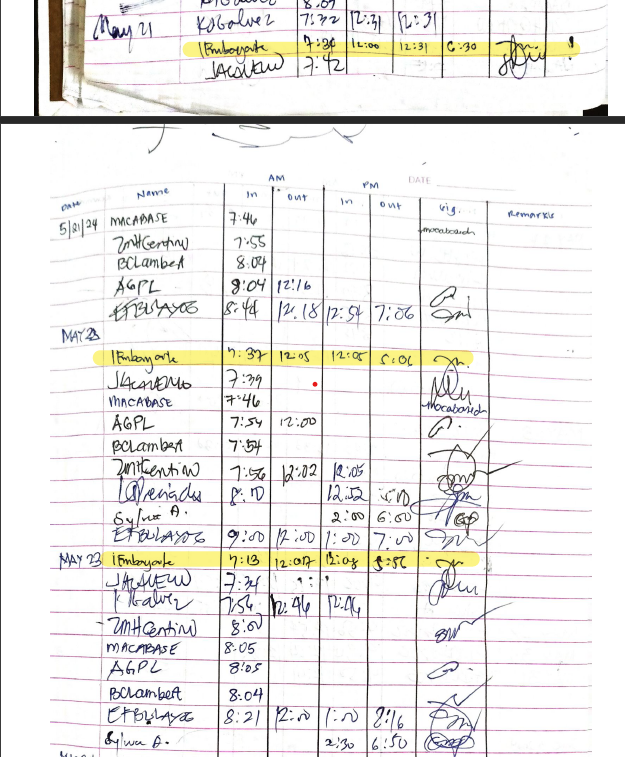 May 21 KDGalvez 7:32 12:31 12:31
IEmbayarte 7:30 12:00 12:31 6:30
7:42
AM PM DATE
DATE Name In Out In Out Sig. Remarks
5/21/24 MACABASE 7:46
ZMHCentino 7:55
BCLambert 8:04
AGPL 8:04 12:16
EFBULAYOG 8:44 12:18 12:54 7:06
MAY 22
IEmbayarte 7:37 12:05 12:05 5:06
7:39
MACABASE 7:46
AGPL 7:54 12:00
BCLambert 7:54
ZMHCentino 7:56 12:02 12:05
8:10 12:52
Sylwa A. 2:00 6:00
EFBULAYOG 9:00 12:00 1:00 7:00
MAY 23 IEmbayarte 7:13 12:07 12:08 5:56
7:34
KGalvez 7:54 12:46 12:46
ZMHCentino 8:00
MACABASE 8:05
AGPL 8:05
BCLambert 8:04
EFBULAYOG 8:21 12:00 1:00 8:16
Sylwa A. 2:30 6:50